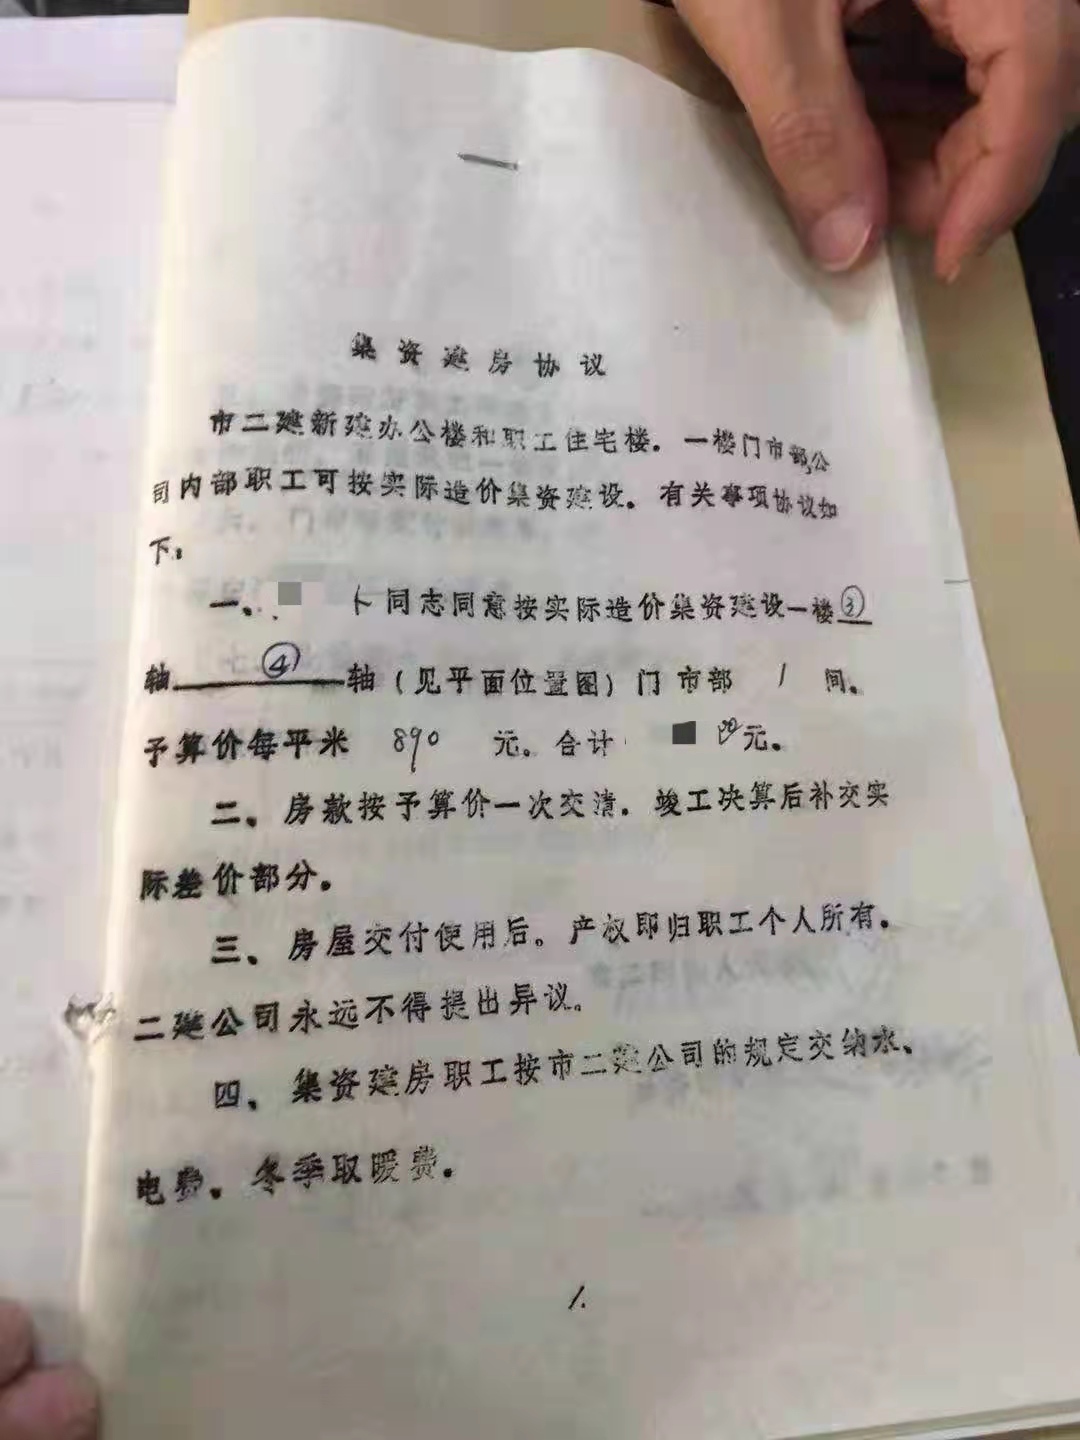 集资建房协议
市二建新建办公楼和职工住宅楼。一楼门市部,公
司内部职工可按实际造价集资建设。有关事项协议如
下:
一、 同志同意按实际造价集资建设一楼③
轴 ④ 轴(见平面位置图)门市部 1 间。
予算价每平米 890 元。合计 元。
二、房款按予算价一次交清。竣工决算后补交实
际差价部分。
三、房屋交付使用后。产权即归职工个人所有。
二建公司永远不得提出异议。
四、集资建房职工按市二建公司的规定交纳水、
电费。冬季取暖费。
1.